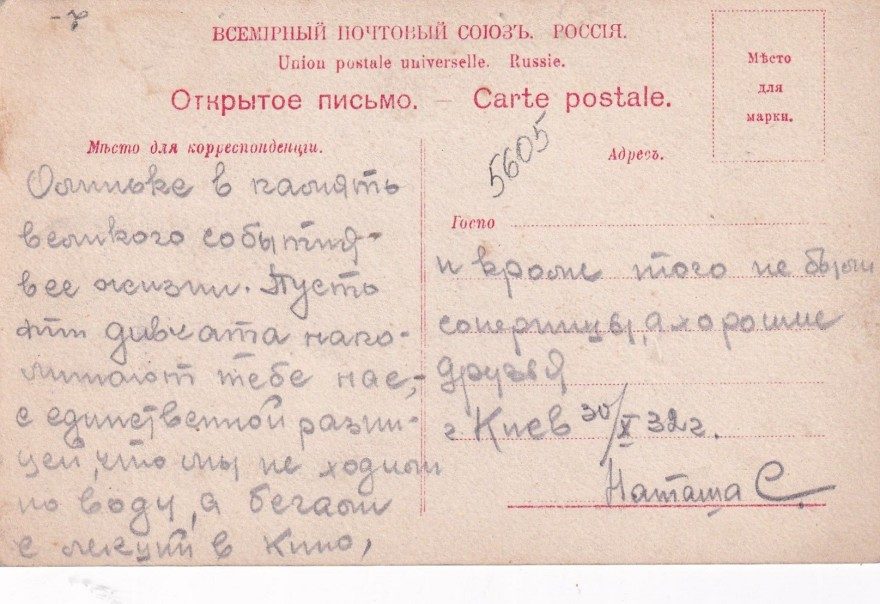 -7
ВСЕМІРНЫЙ ПОЧТОВЫЙ СОЮЗЪ. РОССІЯ.
Union postale universelle. Russie.
Открытое письмо. — Carte postale.
Мѣсто
для
марки.
Мѣсто для корреспонденціи.
5605
Адресъ.
Олиньке в память
великого события -
в ее жизни. Пусто
эти дивчата напо-
минают тебе нас, -
с единственной разни-
цей, что мы не ходим
по воду, а бегаем
с лекций в Кино,
Госпо
и кроме того не были
соперницы, а хорошие
друзья
г. Киев 30/X 32 г.
Наташа С.